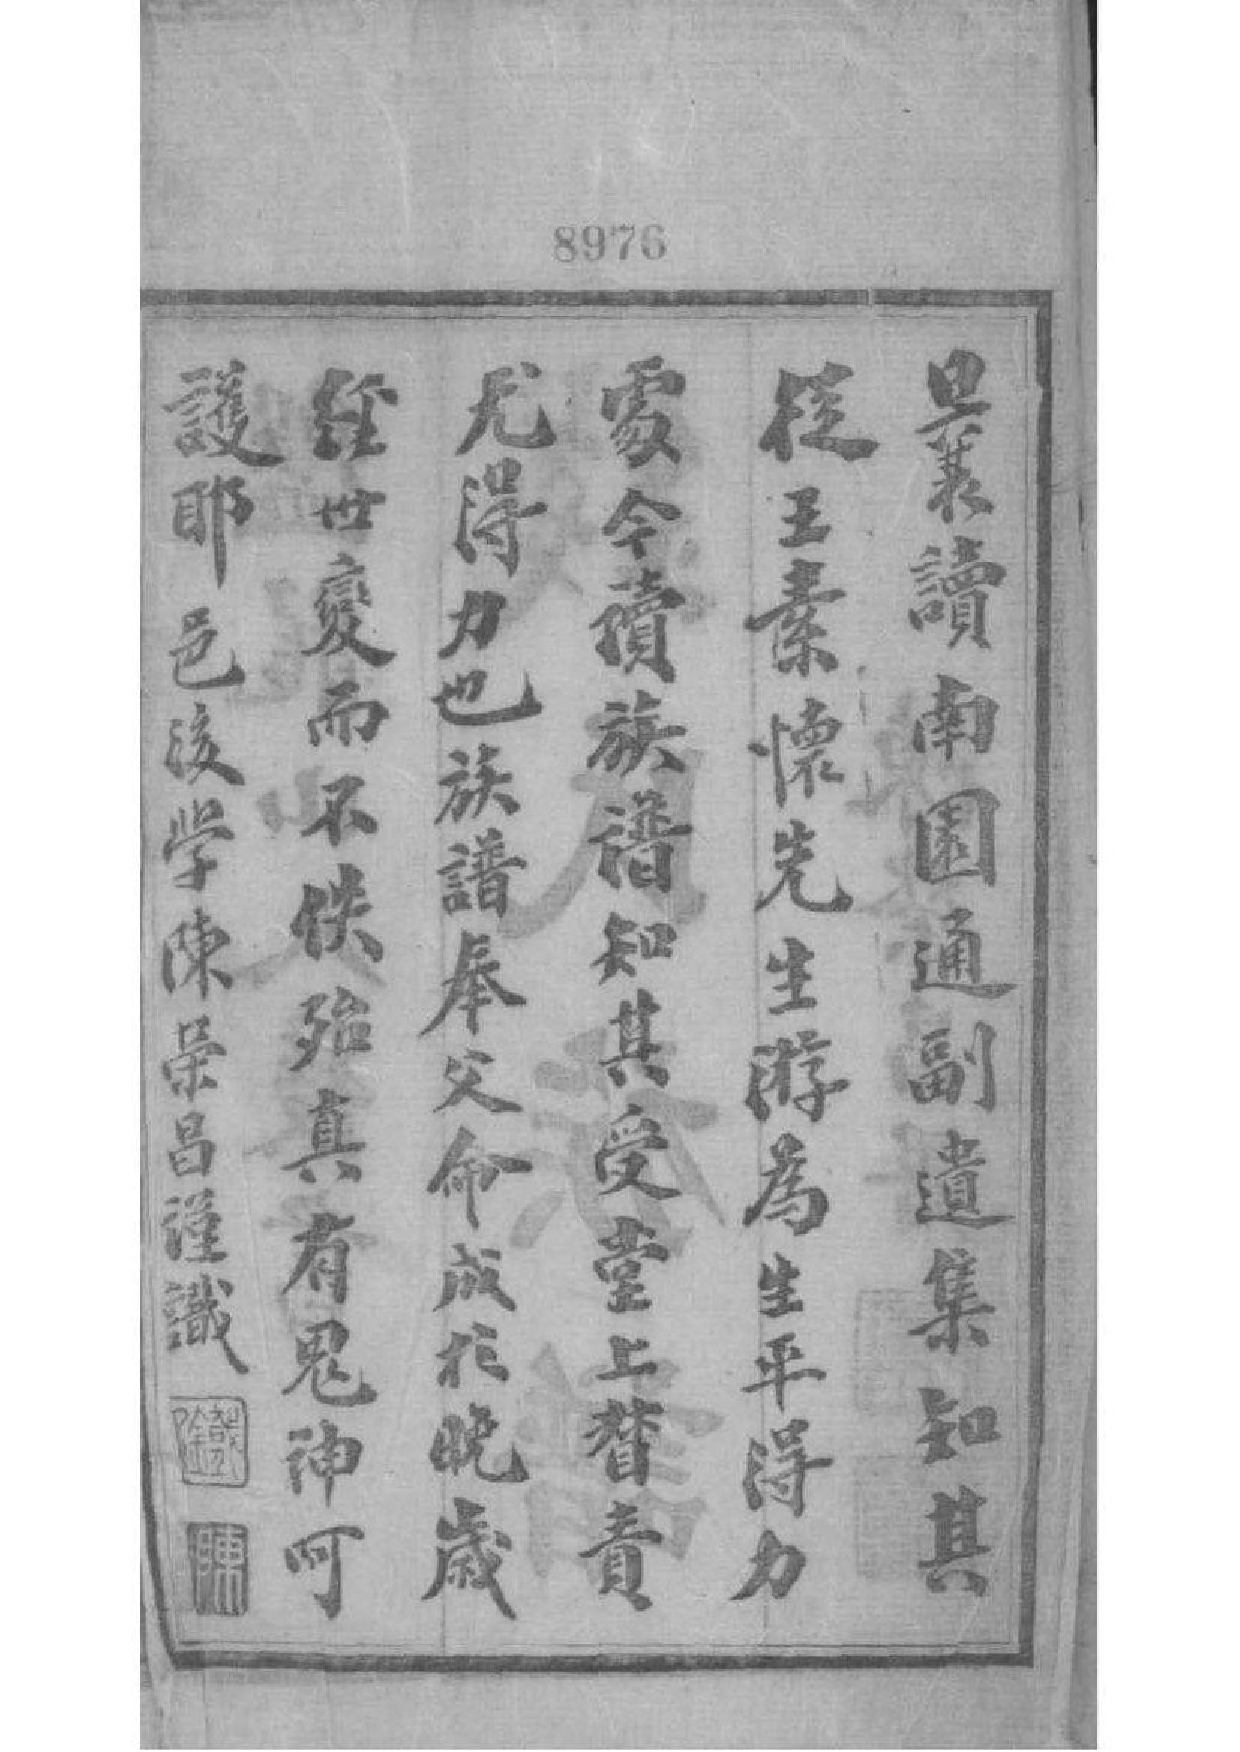 8976
曩讀南園通副遺集知其
從王素懷先生游為生平得力
處今讀族譜知其受堂上督責
尤得力也族譜奉父命成於晚歲
經世變而不佚殆真有鬼神呵
護耶 邑後学陳榮昌謹識
陳